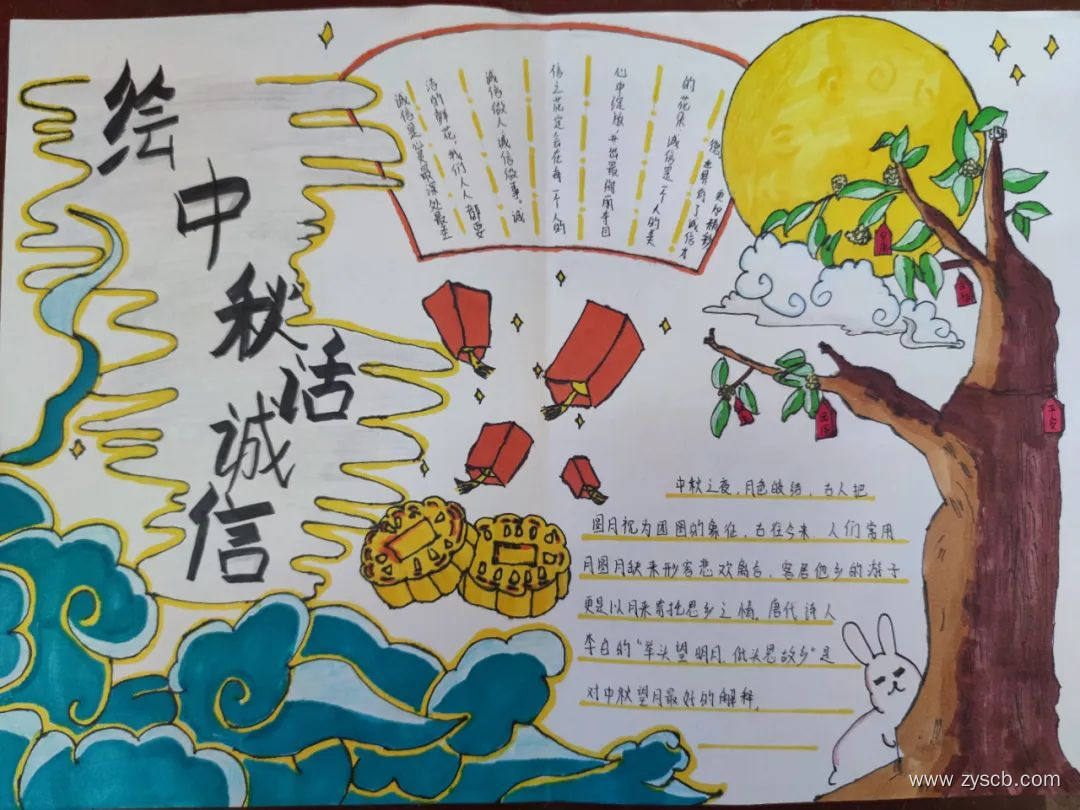 绘中秋话诚信
诚信是心灵最深处最圣
洁的鲜花,我们人人都要
诚信做人,诚信做事。诚
信之花定会在每一个人的
心中绽放,开出最绚丽夺目
的花朵 诚信是一个人的美
德 世界有了诚信才
更加精彩
平安
中秋之夜,月色皎洁,古人把
圆月视为团圆的象征,古往今来 人们常用
月圆月缺来形容悲欢离合,客居他乡的游子
更是以月来寄托思乡之情。唐代诗人
李白的"举头望明月,低头思故乡"是
对中秋望月最好的解释。
www.zyscb.com